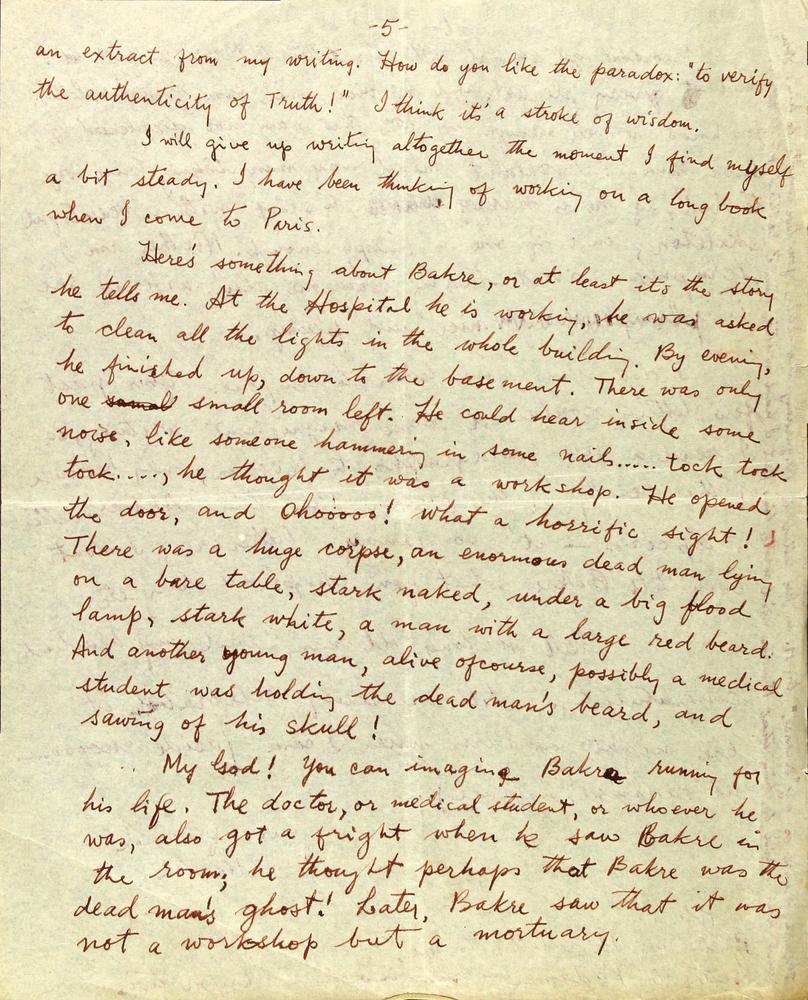 -5-
an extract from my writing. How do you like the paradox: "to verify
the authenticity of Truth!" I think it's a stroke of wisdom.
I will give up writing altogether the moment I find myself
a bit steady. I have been thinking of working on a long book
when I come to Paris.
Here's something about Bakre, or at least its the story
he tells me. At the Hospital he is working, he was asked
to clean all the lights in the whole building. By evening,
he finished up, down to the basement. There was only
one samal small room left. He could hear inside some
noise, like someone hammering in some nails..... tock tock
tock...., he thought it was a workshop. He opened
the door, and Ohooooo! what a horrific sight!
There was a huge corpse, an enormous dead man lying
on a bare table, stark naked, under a big flood
lamp, stark white, a man with a large red beard.
And another young man, alive ofcourse, possibly a medical
student was holding the dead man's beard, and
sawing of his skull!
My God! You can imagine Bakre running for
his life. The doctor, or medical student, or whoever he
was, also got a fright when he saw Bakre in
the room; he thought perhaps that Bakre was the
dead man's ghost! Later, Bakre saw that it was
not a workshop but a mortuary.